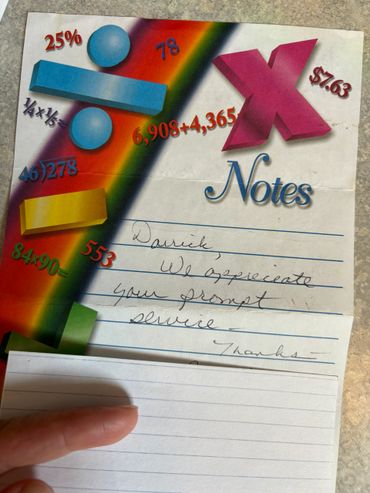 25%
78
$7.63
1/4 x 1/5 =
6,908+4,365
46)278
Notes
553
84x90=
Darrick,
We appreciate
your prompt
service-
Thanks-